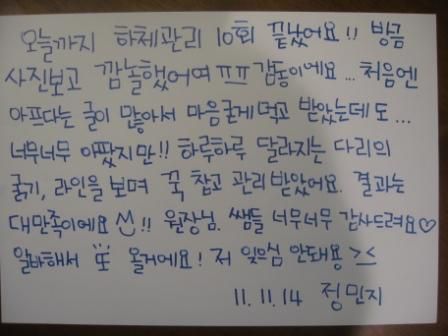 오늘까지 하체관리 10회 끝났어요!! 방금
사진보고 깜놀했어여 ㅠㅠ 감동이에요... 처음엔
아프다는 글이 많아서 마음굳게먹고 받았는데도...
너무너무 아팠지만!! 하루하루 달라지는 다리의
굵기, 라인을 보며 꾹 참고 관리받았어요. 결과는
대만족이에요 !! 원장님. 쌤들 너무너무 감사드려요♡
알바해서 또 올거에요! 저 잊으심 안돼용 >_<
11. 11. 14 정민지